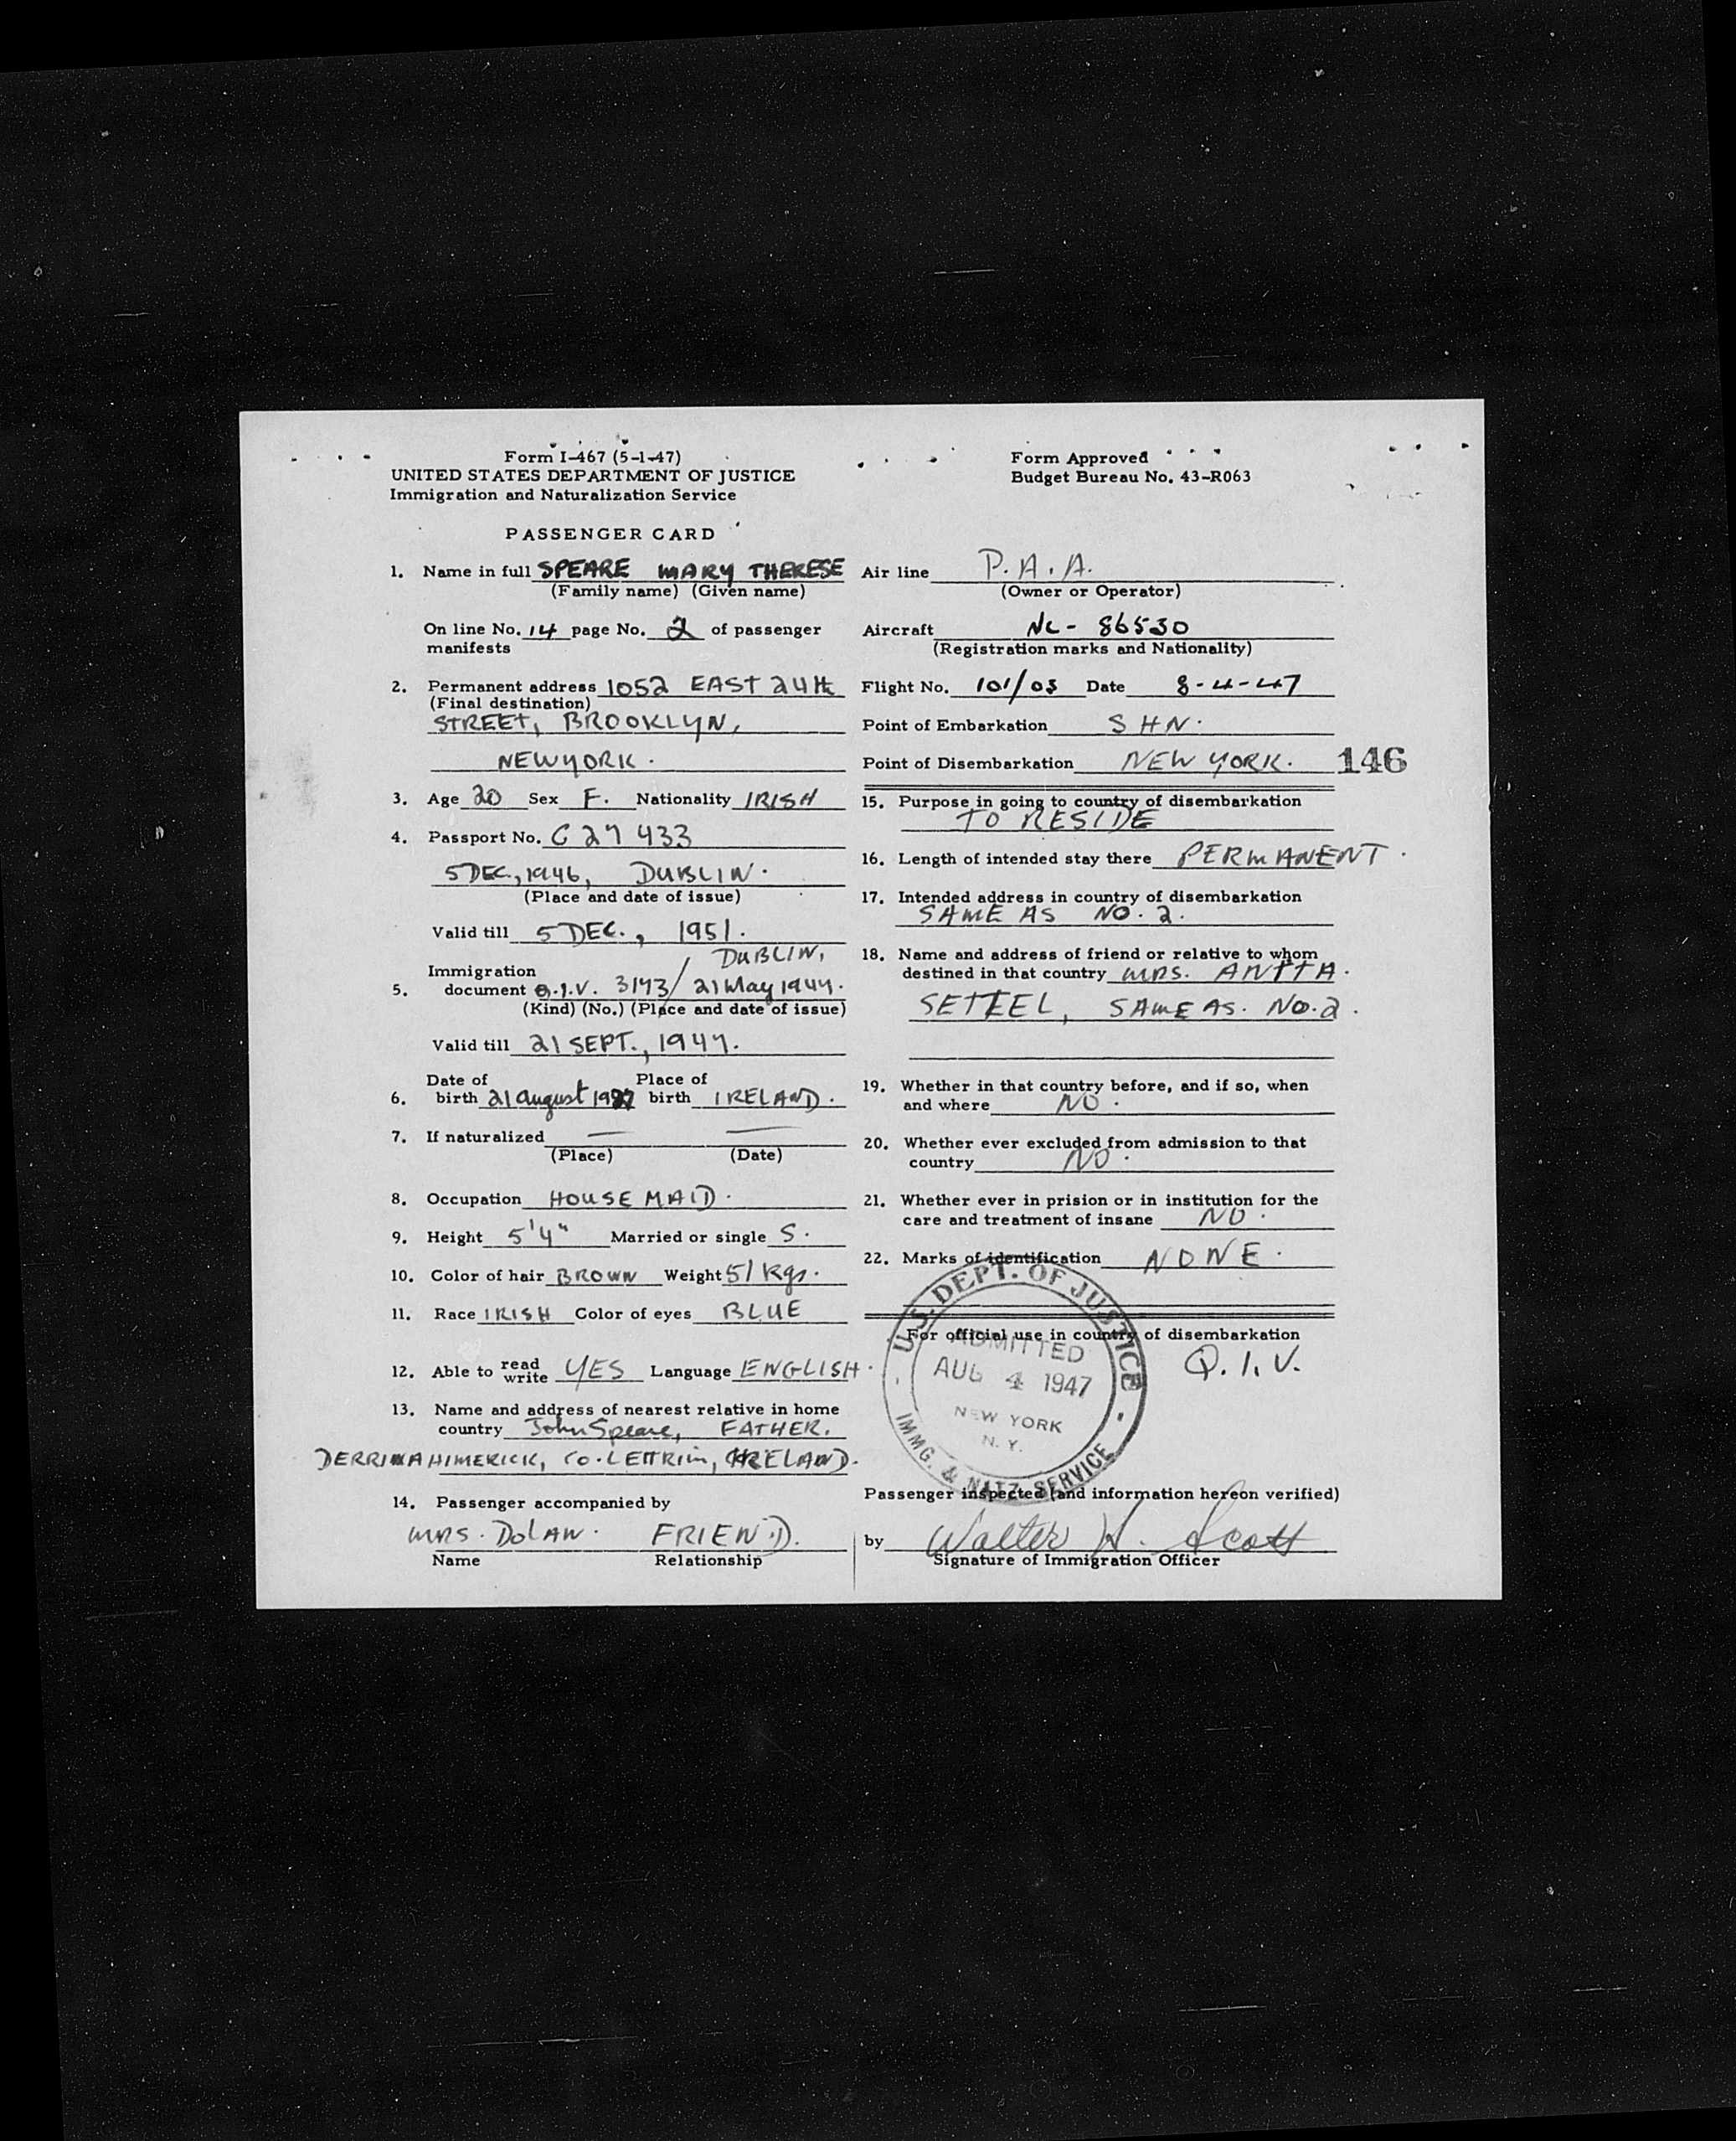 Form I-467 (5-1-47)
UNITED STATES DEPARTMENT OF JUSTICE
Immigration and Naturalization Service
Form Approved
Budget Bureau No. 43-R063
PASSENGER CARD
1. Name in full SPEARE MARY THERESE
(Family name) (Given name)
On line No. 14 page No. 2 of passenger
manifests
2. Permanent address 1052 EAST 24th
(Final destination)
STREET, BROOKLYN,
NEW YORK.
3. Age 20 Sex F. Nationality IRISH
4. Passport No. C 27 433
5 DEC., 1946, DUBLIN.
(Place and date of issue)
Valid till 5 DEC., 1951.
DUBLIN,
Immigration
5. document Q.I.V. 3173/ 21 May 1947.
(Kind) (No.) (Place and date of issue)
Valid till 21 SEPT., 1947.
Date of Place of
6. birth 21 August 1927 birth IRELAND.
7. If naturalized — —
(Place) (Date)
8. Occupation HOUSE MAID.
9. Height 5'4" Married or single S.
10. Color of hair BROWN Weight 51 Kgs.
11. Race IRISH Color of eyes BLUE
12. Able to read write YES Language ENGLISH.
13. Name and address of nearest relative in home
country John Speare, FATHER.
CO. LEITRIM, IRELAND.
14. Passenger accompanied by
MRS. DOLAN. FRIEND.
Name Relationship
Air line P.A.A.
(Owner or Operator)
Aircraft NC - 86530
(Registration marks and Nationality)
Flight No. 101/03 Date 8-4-47
Point of Embarkation SHN.
Point of Disembarkation NEW YORK. 146
15. Purpose in going to country of disembarkation
TO RESIDE
16. Length of intended stay there PERMANENT.
17. Intended address in country of disembarkation
SAME AS NO. 2.
18. Name and address of friend or relative to whom
destined in that country MRS.
SAME AS. NO. 2.
19. Whether in that country before, and if so, when
and where NO.
20. Whether ever excluded from admission to that
country NO.
21. Whether ever in prision or in institution for the
care and treatment of insane NO.
22. Marks of identification NONE.
For official use in country of disembarkation
Q.I.V.
U.S. DEPT. OF JUSTICE
ADMITTED
AUG 4 1947
NEW YORK
N. Y.
IMMG. & NATZ. SERVICE
Passenger inspected (and information hereon verified)
by Walter H. Scott
Signature of Immigration Officer